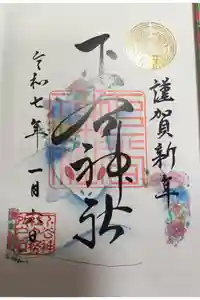 謹賀新年
下谷神社
令和七年
一月
日